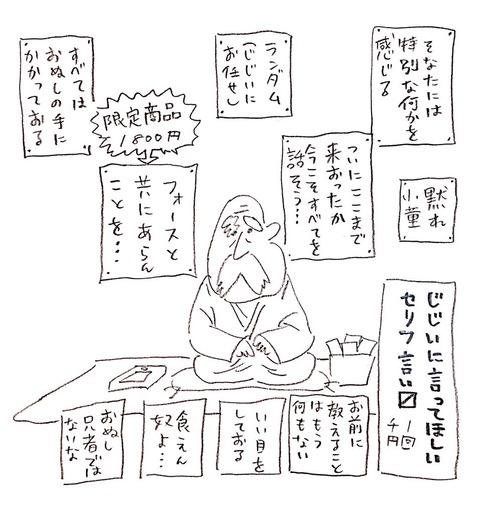 そなたには
特別な何かを
感じる
ランダム
(じじいに
お任せ)
すべては
おぬしの手に
かかっておる
限定商品
1800円
フォースと
共にあらん
ことを…
ついにここまで
来おったか
今こそすべてを
話そう…
黙れ
小童
じじいに言ってほしい
セリフ言い〼
1回
千円
お前に
教えること
はもう
何もない
いい目を
しておる
食えん
奴よ…
おぬし
只者では
ないな